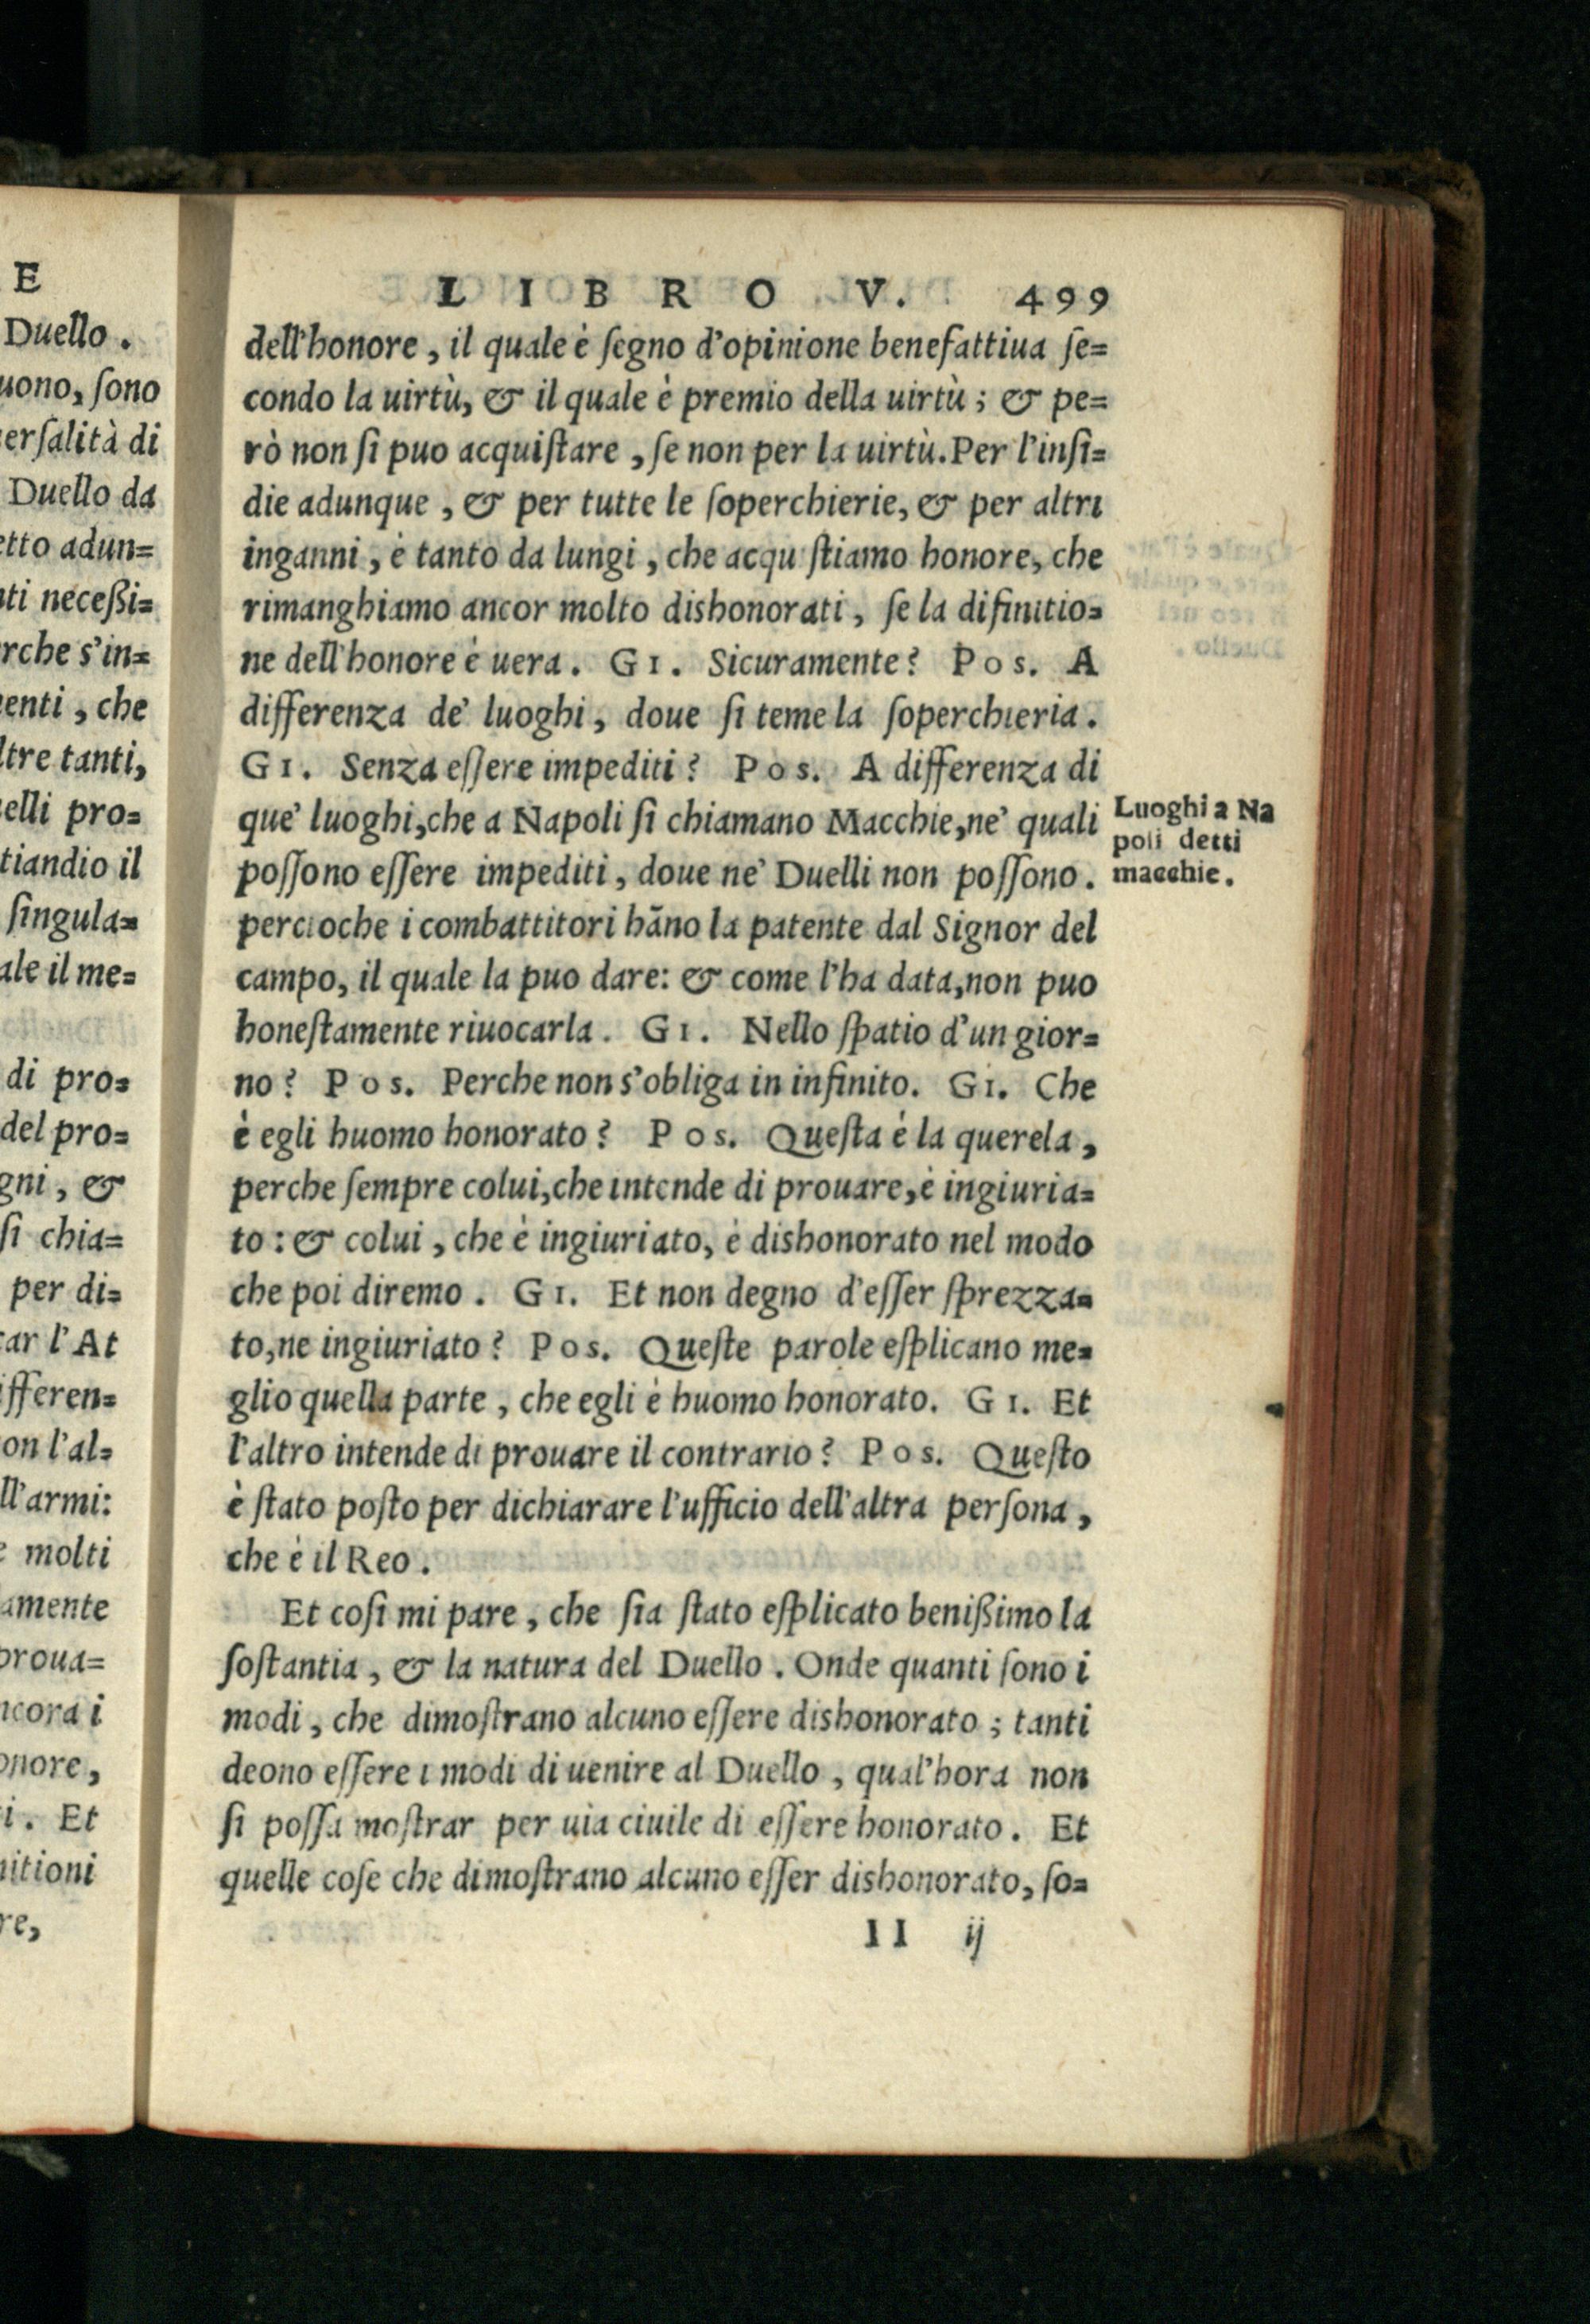 E
Duello.
uono, ſono
erſalità di
Duello da
etto adun=
ti neceßi=
rche s'in=
enti, che
ltre tanti,
elli pro=
tiandio il
ſingula=
ale il me=
di pro=
del pro=
gni, &
ſi chia=
per di=
car l'At
ifferen=
on l'al=
ll'armi:
e molti
amente
proua=
ncora i
onore,
i. Et
nitioni
re,
LIBRO V. 499
dell'honore, il quale è ſegno d'opinione benefattiua ſe=
condo la uirtù, & il quale è premio della uirtù; & pe=
rò non ſi puo acquiſtare, ſe non per la uirtù. Per l'inſi=
die adunque, & per tutte le ſoperchierie, & per altri
inganni, è tanto da lungi, che acquſtiamo honore, che
rimanghiamo ancor molto dishonorati, ſe la difinitio=
ne dell'honore è uera. GI. Sicuramente? Pos. A
differenza de' luoghi, doue ſi teme la ſoperchieria.
GI. Senza eſſere impediti? Pos. A differenza di
que' luoghi, che a Napoli ſi chiamano Macchie, ne' quali
poſſono eſſere impediti, doue ne' Duelli non poſſono.
percioche i combattitori hāno la patente dal Signor del
campo, il quale la puo dare: & come l'ha data, non puo
honeſtamente riuocarla. GI. Nello ſpatio d'un gior=
no? Pos. Perche non s'obliga in infinito. GI. Che
è egli huomo honorato? Pos. Queſta è la querela,
perche ſempre colui, che intende di prouare, è ingiuria=
to: & colui, che è ingiuriato, è dishonorato nel modo
che poi diremo. GI. Et non degno d'eſſer ſprezza=
to, ne ingiuriato? Pos. Queſte parole eſplicano me=
glio quella parte, che egli è huomo honorato. GI. Et
l'altro intende di prouare il contrario? Pos. Queſto
è ſtato poſto per dichiarare l'ufficio dell'altra perſona,
che è il Reo.
Et coſi mi pare, che ſia ſtato eſplicato benißimo la
ſoſtantia, & la natura del Duello. Onde quanti ſono i
modi, che dimoſtrano alcuno eſſere dishonorato; tanti
deono eſſere i modi di uenire al Duello, qual'hora non
ſi poſſa moſtrar per uia ciuile di eſſere honorato. Et
quelle coſe che dimoſtrano alcuno eſſer dishonorato, ſo=
II ij
Luoghi a Na
poli detti
macchie.